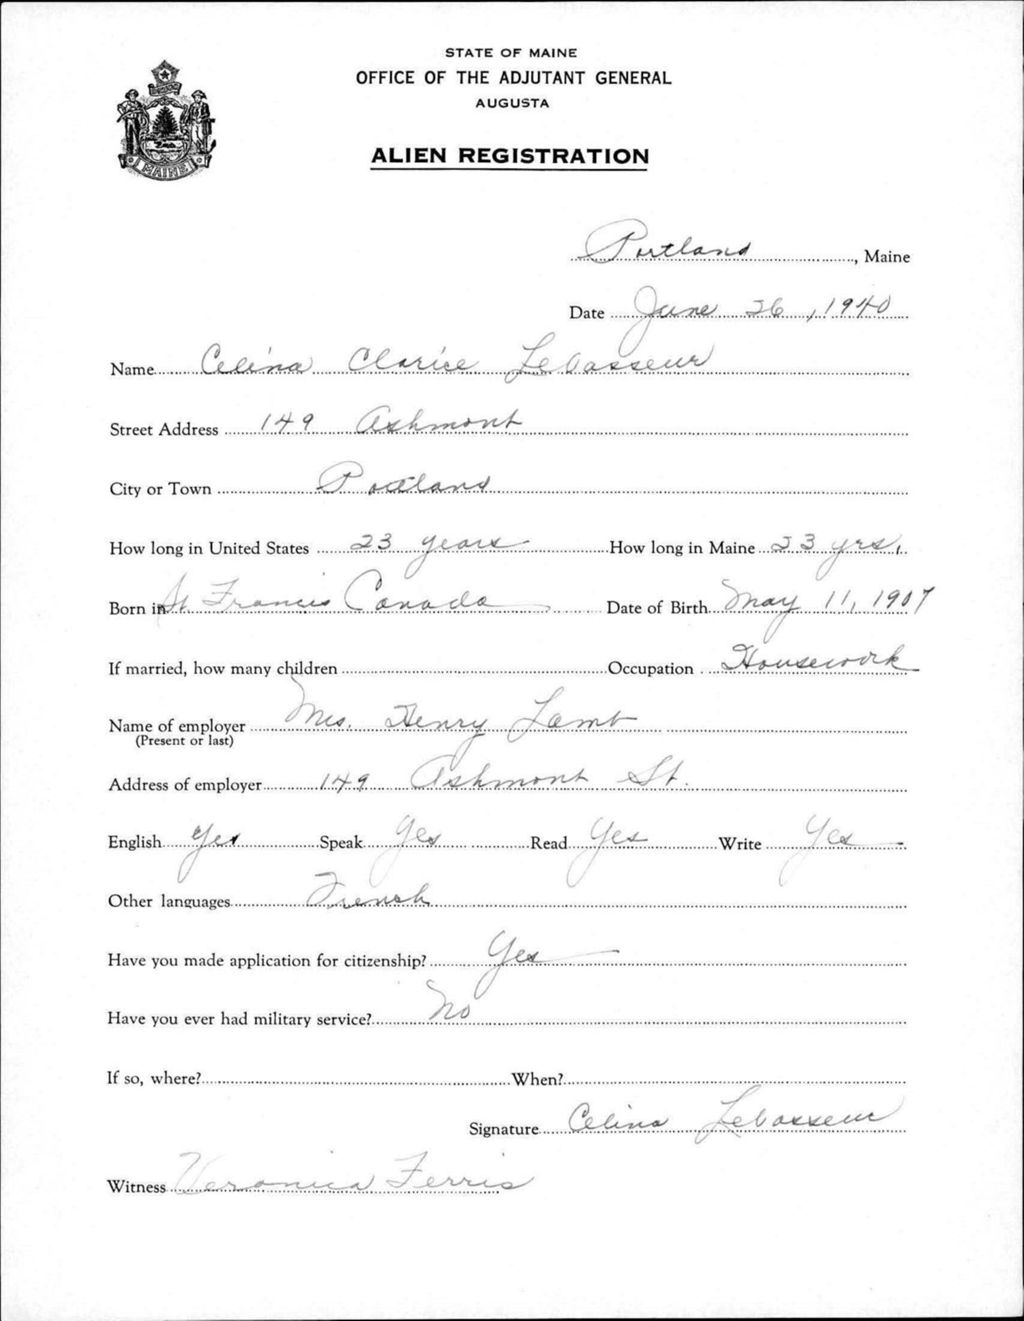 STATE OF MAINE
OFFICE OF THE ADJUTANT GENERAL
AUGUSTA
ALIEN REGISTRATION
MAINE
Portland, Maine
Date June 26, 1940
Name Celina Clarice Levasseur
Street Address 149 Ashmont
City or Town Portland
How long in United States 23 years How long in Maine 23 yrs.
Born in St. Francis Canada Date of Birth May 11, 1907
If married, how many children Occupation Housework
Name of employer Mrs. Henry Lamb
(Present or last)
Address of employer 149 Ashmont St.
English Yes Speak Yes Read Yes Write Yes
Other languages French
Have you made application for citizenship? Yes
Have you ever had military service? No
If so, where? When?
Signature Celina Levasseur
Witness Veronica Ferris